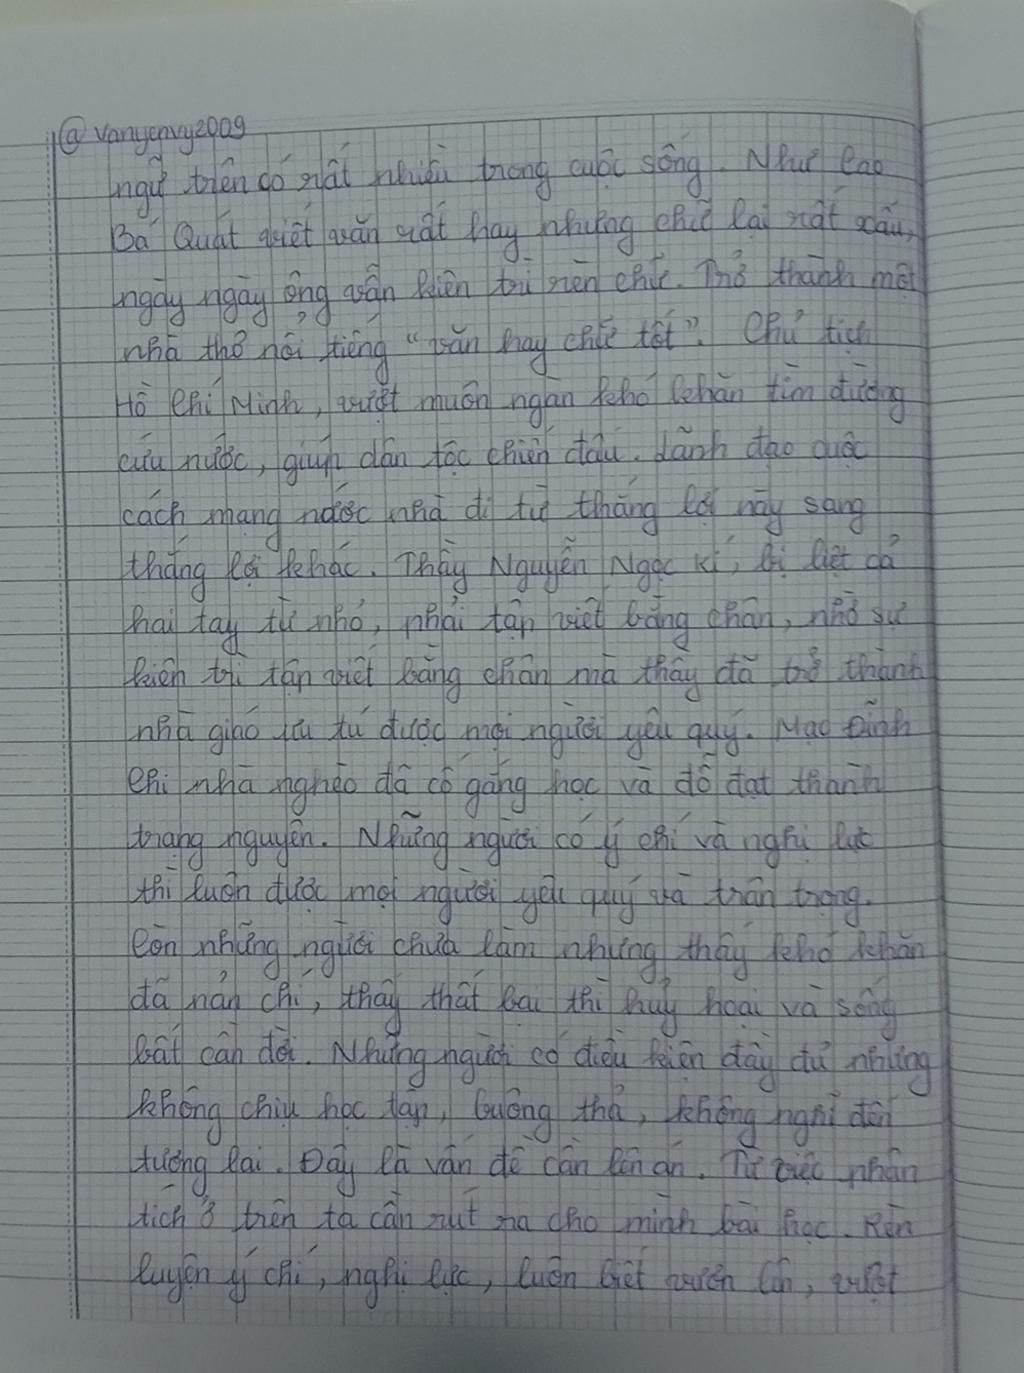 @vanyenvy2009
ngữ trên có rất nhiều trong cuộc sống. Như Cao
Bá Quát viết văn rất hay nhưng chữ lại rất xấu,
ngày ngày ông vẫn kiên trì rèn chữ. Trở thành một
nhà thơ nổi tiếng "văn hay chữ tốt". Chủ tịch
Hồ Chí Minh, vượt muôn ngàn khó khăn tìm đường
cứu nước, giúp dân tộc chiến đấu. Lãnh đạo cuộc
cách mạng nước nhà đi từ thắng lợi này sang
thắng lợi khác. Thầy Nguyễn Ngọc Kí, bị liệt cả
hai tay từ nhỏ, phải tập viết bằng chân, nhờ sự
kiên trì tập viết bằng chân mà thầy đã trở thành
nhà giáo ưu tú được mọi người yêu quý. Mạc Đĩnh
Chi nhà nghèo đã cố gắng học và đỗ đạt thành
trạng nguyên. Những người có ý chí và nghị lực
thì luôn được mọi người yêu quý và trân trọng.
Còn những người chưa làm nhưng thấy khó khăn
đã nản chí, thấy thất bại thì huỷ hoại và sống
bất cần đời. Những người có điều kiện đầy đủ nhưng
không chịu học tập, buông thả, không nghĩ đến
tương lai. Đây là vấn đề cần lên án. Từ việc phân
tích ở trên ta cần rút ra cho mình bài học. Rèn
luyện ý chí, nghị lực, luôn biết vươn lên, vượt